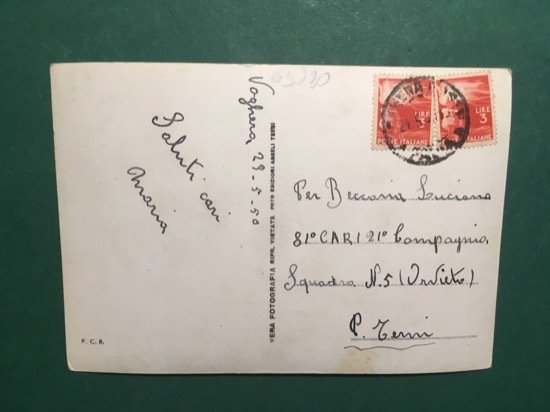 Voghera 29-5-50
Saluti cari
Maria
VERA FOTOGRAFIA RIPR. VIETATA FOTO EDIZIONI ANGELI TERNI
F. C. B.
LIRE
3
POSTE ITALIANE
LIRE
3
POSTE ITALIANE
Per Beccaria Luciano
81° CAR 121° Compagnia
Squadra N.5 (Orvieto)
P. Terni